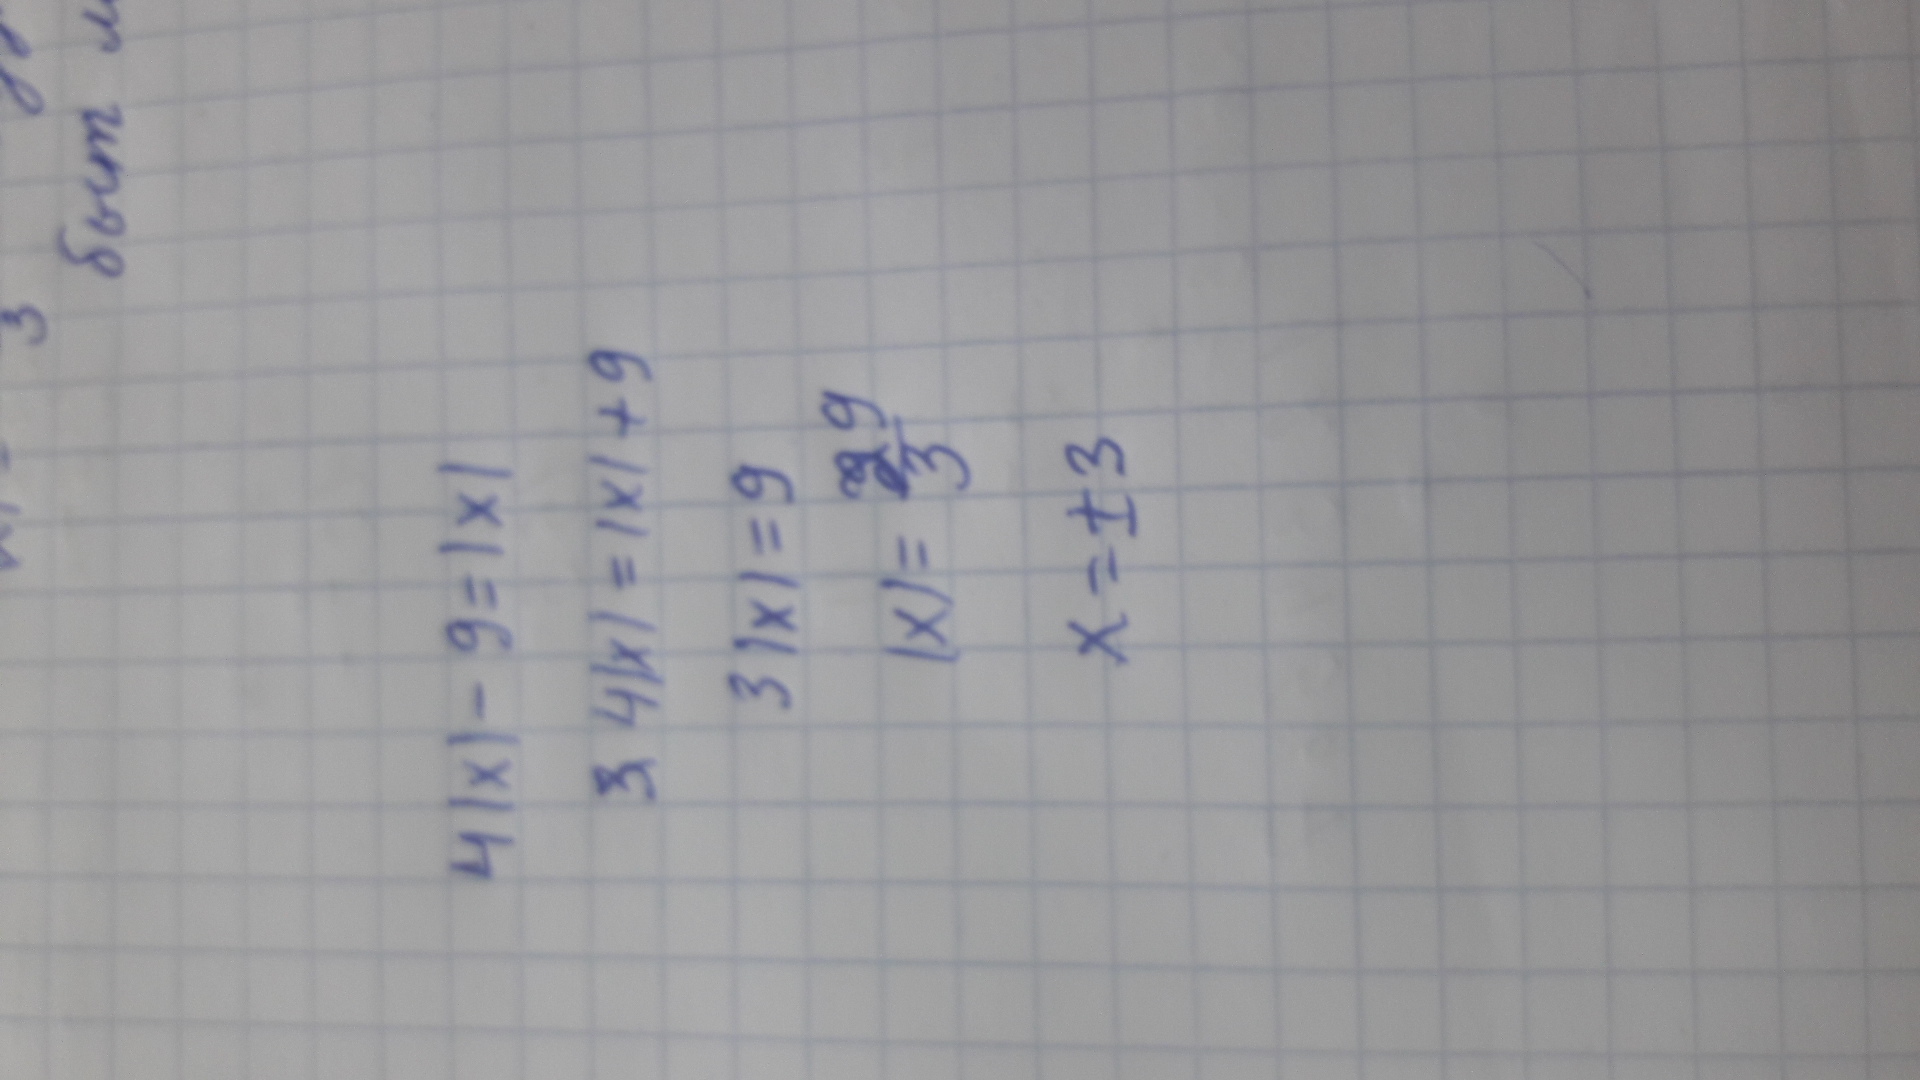 3
быт
4|x| - 9 = |x|
3 4|x| = |x| + 9
3|x| = 9
|x| = 9/3
x = ±3